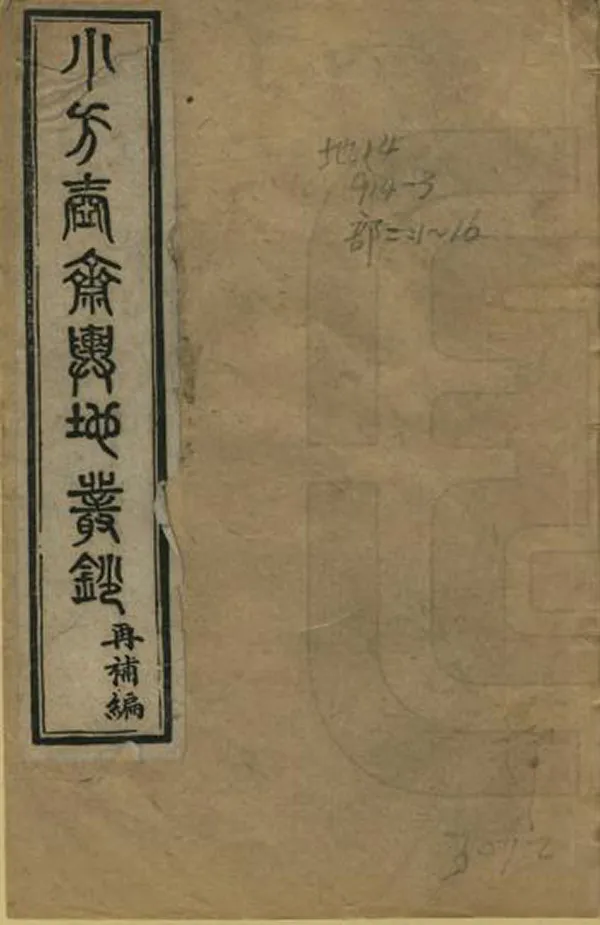 小方壺齋輿地叢鈔
再補編
地14
914-3
部二:1~16